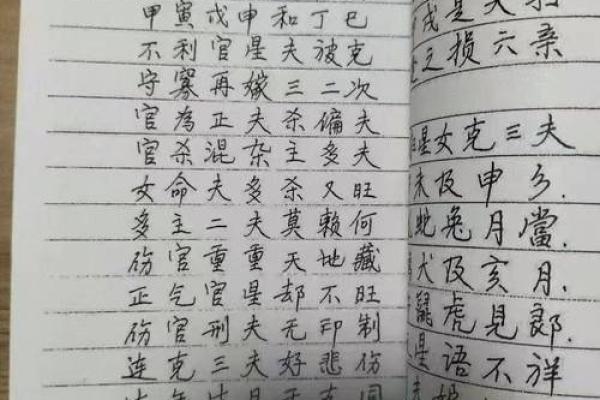 甲寅戊申和丁巳
不利官星夫被克
守寡再嫁三二次
官為正夫杀偏夫
官杀混杂主多夫
女命夫多杀又旺
多主二夫莫赖何
伤官重重天地藏
正气官星却不旺
伤官刑夫无印制
连克三夫好悲伤
戌是夫
之损六亲
星女克三夫
未及申乡.
蛇兔月當.
犬及亥月.
鼠虎見郎.
星语不祥